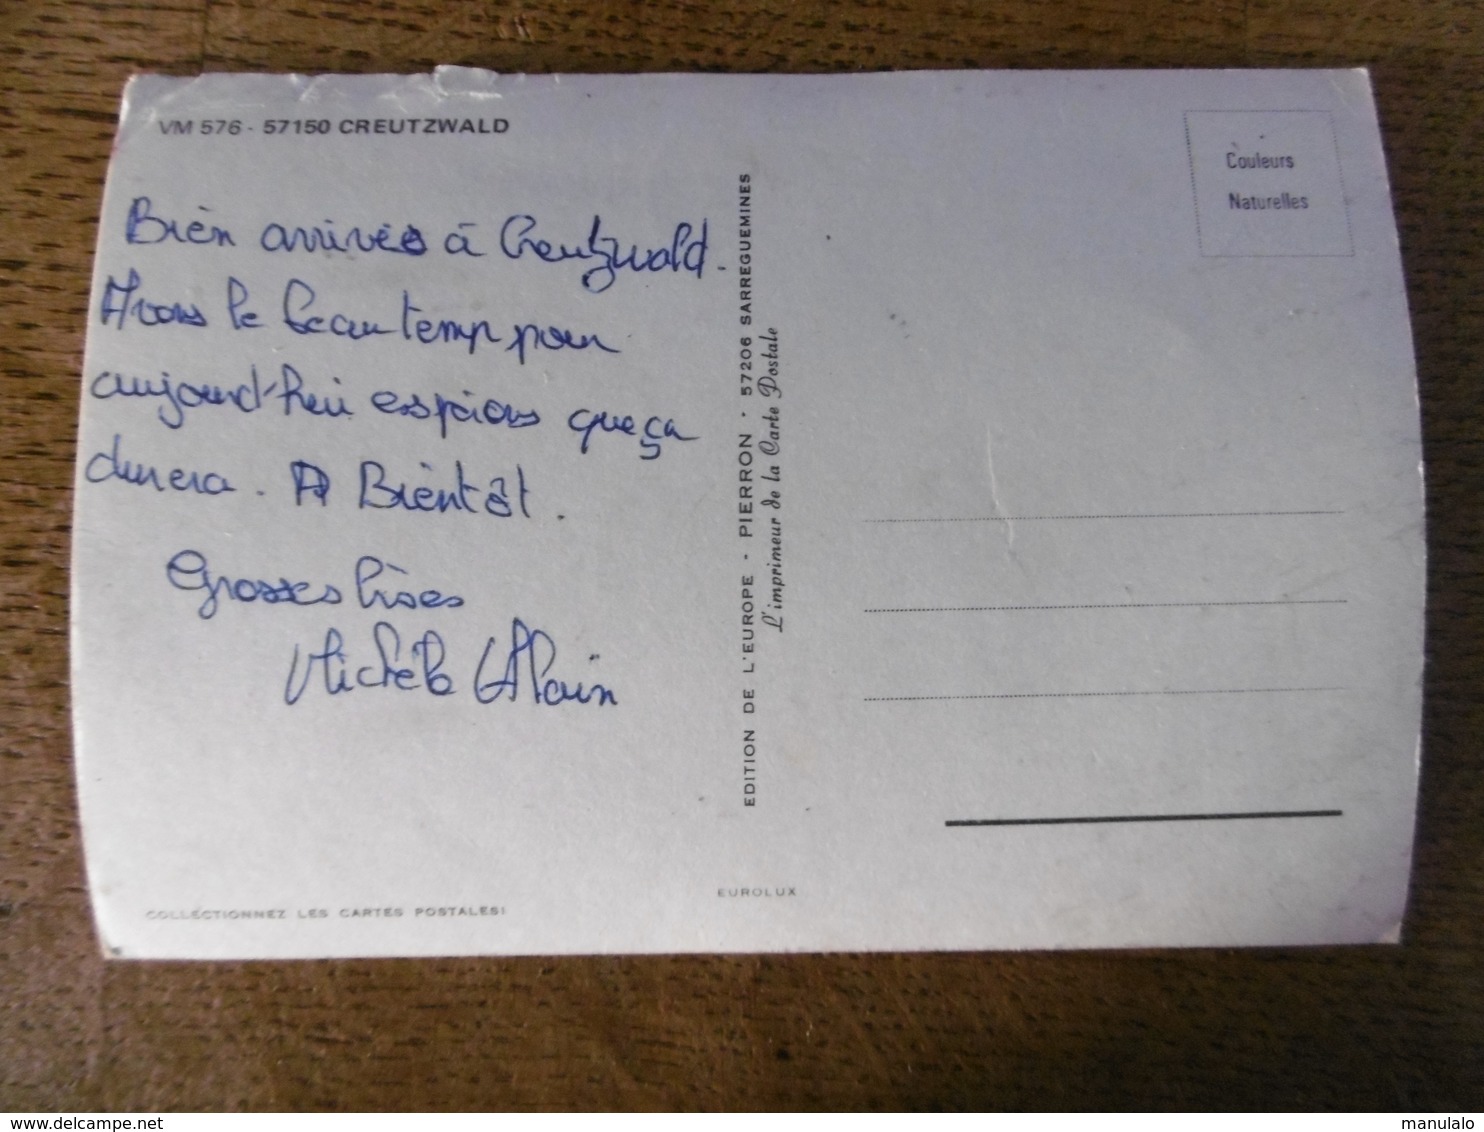 VM 576 - 57150 CREUTZWALD
Bien arrivés à Creutzwald.
Avons le beau temp pour
aujourd'hui espérons que ça
durera. A Bientôt.
Grosses bises
Michèle Alain
COLLECTIONNEZ LES CARTES POSTALES!
EDITION DE L'EUROPE - PIERRON - 57206 SARREGUEMINES
L'imprimeur de la Carte Postale
EUROLUX
Couleurs
Naturelles
delcampe.net
manulalo